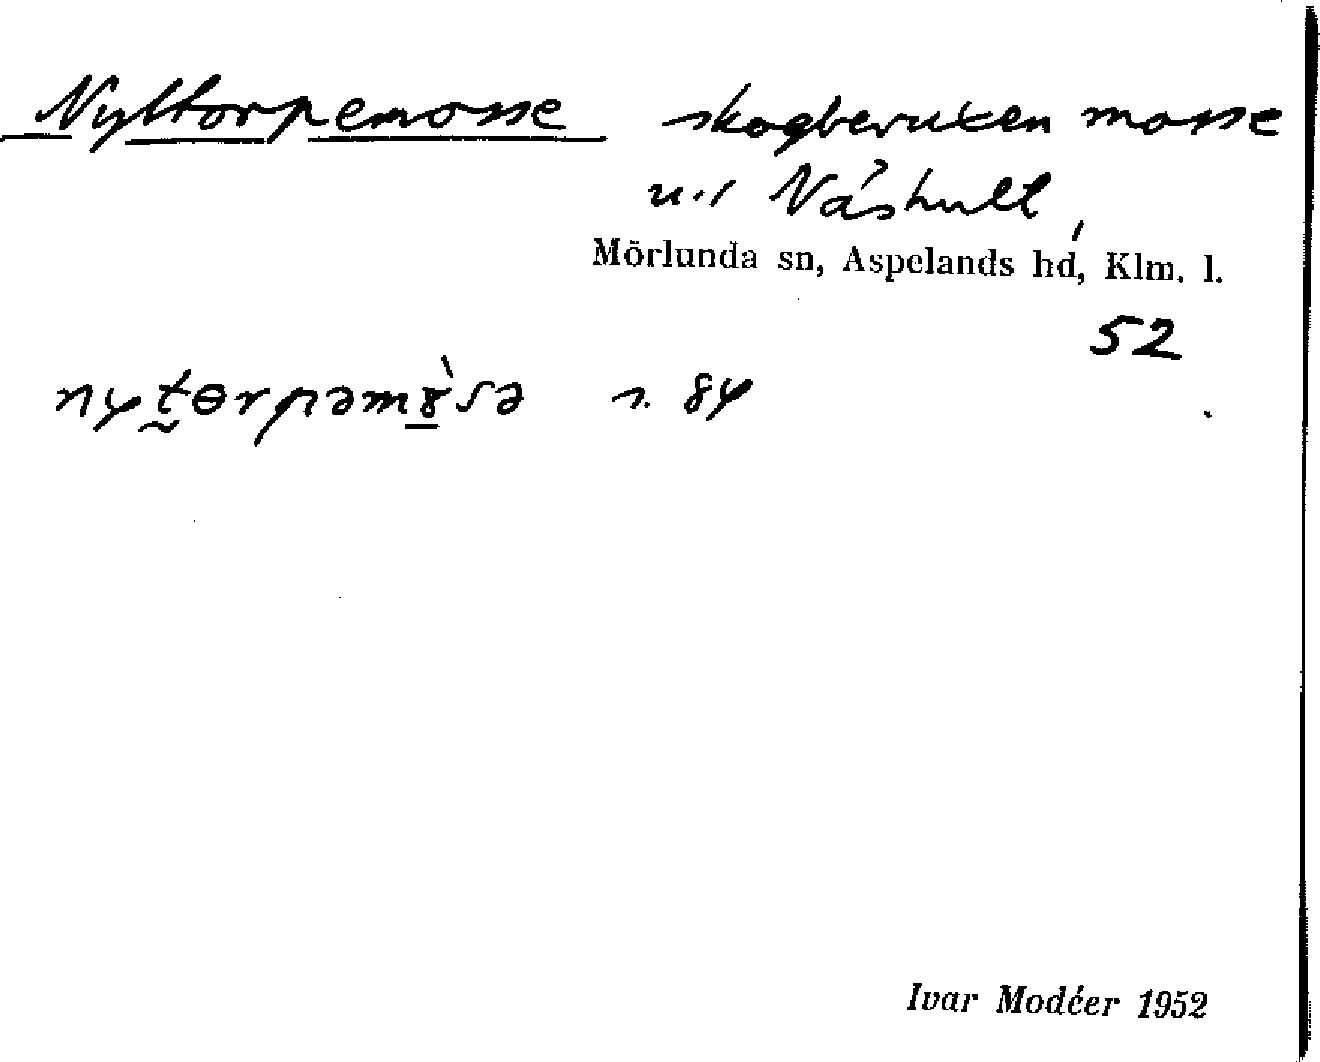 Nyttorpemosse skogbevuxen mosse
u.i Nåshult,
Mörlunda sn, Aspelands hd, Klm. l.
52
Ivar Modéer 1952